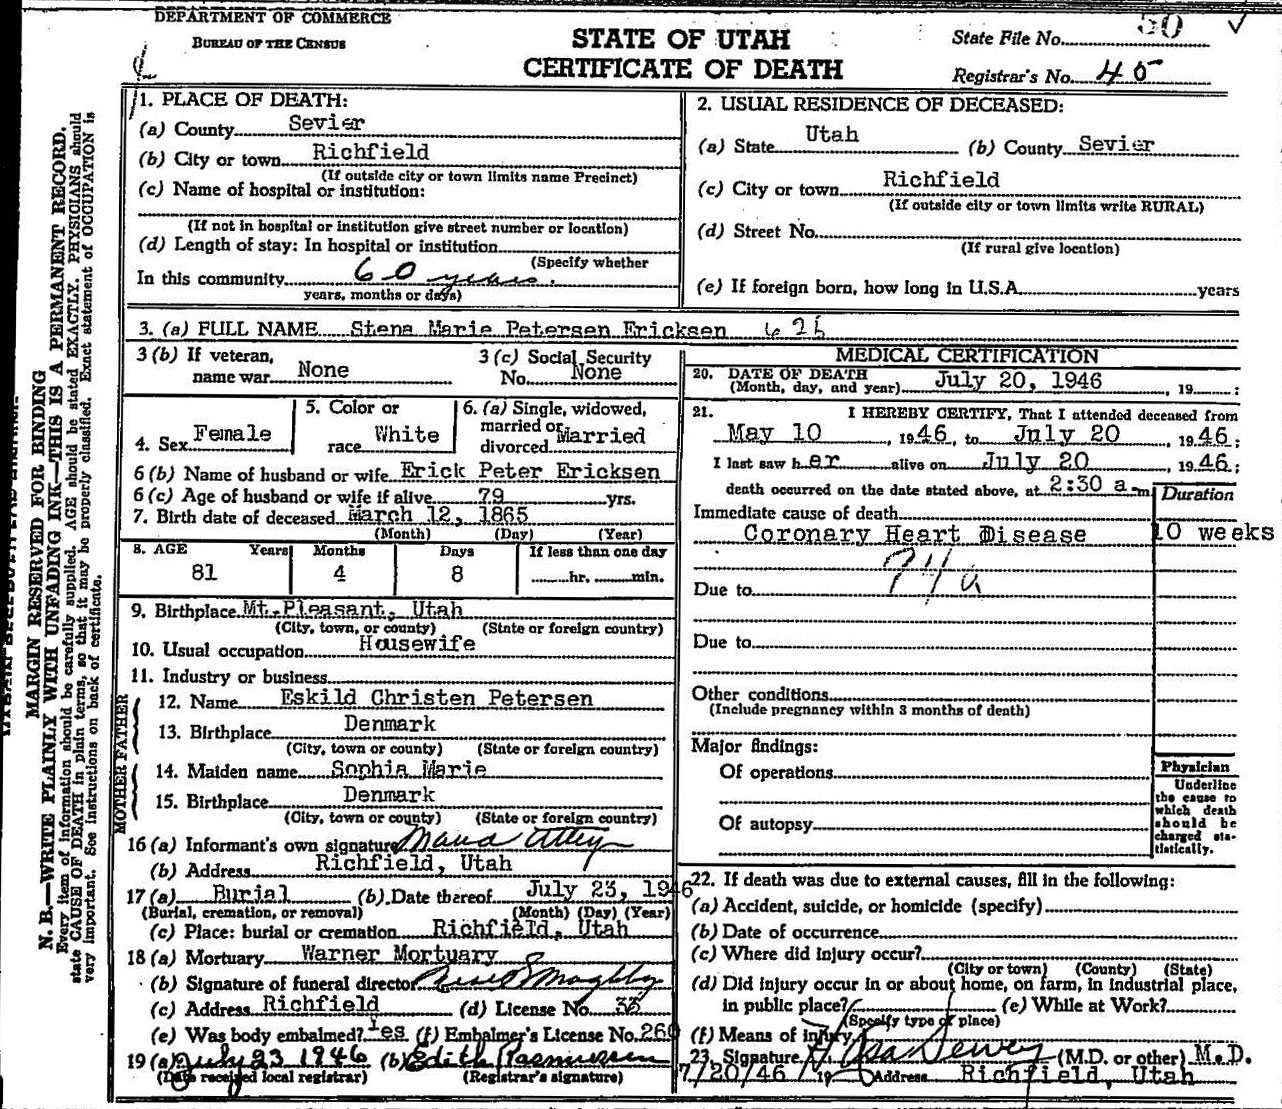 DEPARTMENT OF COMMERCE
BUREAU OF THE CENSUS
STATE OF UTAH
CERTIFICATE OF DEATH
State File No. 50
Registrar's No. 45
MARGIN RESERVED FOR BINDING
N. B.—WRITE PLAINLY WITH UNFADING INK—THIS IS A PERMANENT RECORD.
Every item of information should be carefully supplied. AGE should be stated EXACTLY. PHYSICIANS should
state CAUSE OF DEATH in plain terms, so that it may be properly classified. Exact statement of OCCUPATION is
very important. See instructions on back of certificate.
1. PLACE OF DEATH:
(a) County Sevier
(b) City or town Richfield
(If outside city or town limits name Precinct)
(c) Name of hospital or institution:
(If not in hospital or institution give street number or location)
(d) Length of stay: In hospital or institution
(Specify whether
In this community 60 years.
years, months or days)
2. USUAL RESIDENCE OF DECEASED:
(a) State Utah (b) County Sevier
(c) City or town Richfield
(If outside city or town limits write RURAL)
(d) Street No.
(If rural give location)
(e) If foreign born, how long in U.S.A. years
3. (a) FULL NAME Stena Marie Petersen Ericksen 626
3 (b) If veteran,
name war None
3 (c) Social Security
No. None
4. Sex Female
5. Color or
race White
6. (a) Single, widowed,
married or
divorced Married
6 (b) Name of husband or wife Erick Peter Ericksen
6 (c) Age of husband or wife if alive 79 yrs.
7. Birth date of deceased March 12, 1865
(Month) (Day) (Year)
8. AGE Years Months Days If less than one day
81 4 8 hr. min.
9. Birthplace Mt. Pleasant, Utah
(City, town, or county) (State or foreign country)
10. Usual occupation Housewife
11. Industry or business
FATHER
12. Name Eskild Christen Petersen
13. Birthplace Denmark
(City, town or county) (State or foreign country)
MOTHER
14. Maiden name Sophia Marie
15. Birthplace Denmark
(City, town or county) (State or foreign country)
16 (a) Informant's own signature
(b) Address Richfield, Utah
17 (a) Burial (b) Date thereof July 23, 1946
(Burial, cremation, or removal) (Month) (Day) (Year)
(c) Place: burial or cremation Richfield, Utah
18 (a) Mortuary Warner Mortuary
(b) Signature of funeral director
(c) Address Richfield (d) License No. 33
(e) Was body embalmed? Yes (f) Embalmer's License No. 260
19 (a) July 23 1946 (b) Edith Rasmussen
(Date received local registrar) (Registrar's signature)
MEDICAL CERTIFICATION
20. DATE OF DEATH
(Month, day, and year) July 20, 1946 , 19 :
21. I HEREBY CERTIFY, That I attended deceased from
May 10 , 1946, to July 20 , 1946;
I last saw her alive on July 20 , 1946;
death occurred on the date stated above, at 2:30 a m
Duration
Immediate cause of death
Coronary Heart Disease 10 weeks
Due to
Due to
Other conditions
(Include pregnancy within 3 months of death)
Major findings:
Of operations
Of autopsy
Physician
Underline
the cause to
which death
should be
charged sta-
tistically.
22. If death was due to external causes, fill in the following:
(a) Accident, suicide, or homicide (specify)
(b) Date of occurrence
(c) Where did injury occur?
(City or town) (County) (State)
(d) Did injury occur in or about home, on farm, in industrial place,
in public place? (e) While at Work?
(Specify type of place)
(f) Means of injury
23. Signature Dewey (M.D. or other) M.D.
7/20/46 19 Address Richfield, Utah